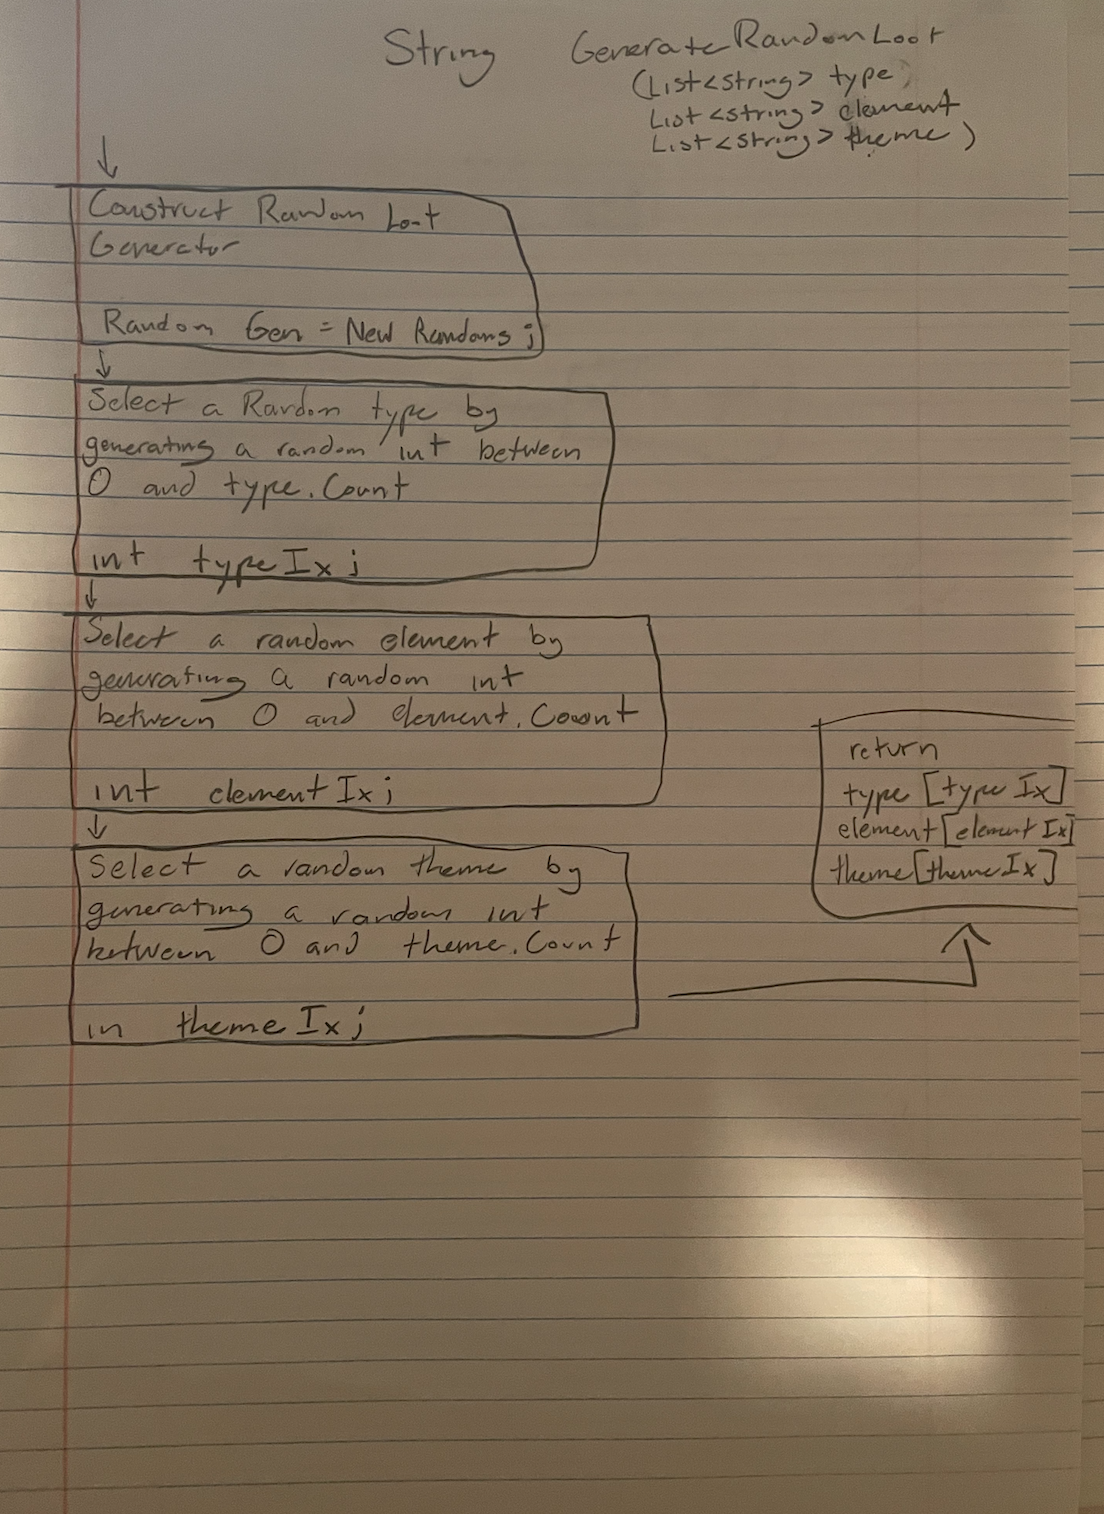 String GenerateRandomLoot
(List<string> type
List<string> element
List<string> theme)
Construct Random Loot
Generator
Random Gen = New Randoms;
Select a Random type by
generating a random int between
0 and type.Count
int typeIx;
Select a random element by
generating a random int
between 0 and element.Count
int elementIx;
Select a random theme by
generating a random int
between 0 and theme.Count
in themeIx;
return
type[typeIx]
element[elementIx]
theme[themeIx]